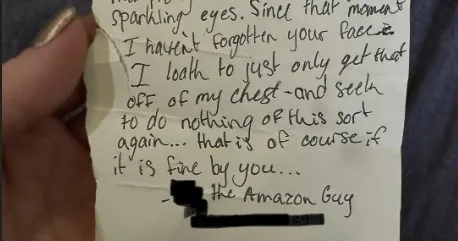 sparkling eyes. Since that moment
I haven't forgotten your face
I loath to just only get that
off of my chest-and seek
to do nothing of this sort
again... that is of course if
it is fine by you...
- the Amazon Guy